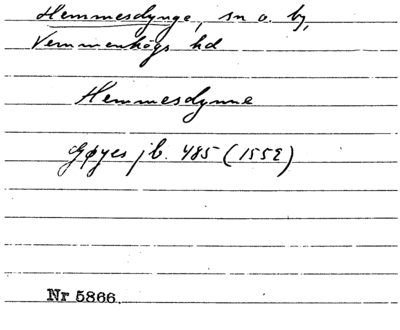 Hemmesdynge, sn o. by,
Vemmenhögs hd
Hemmesdynne
Gøyes jb. 485 (1552)
Nr 5866.